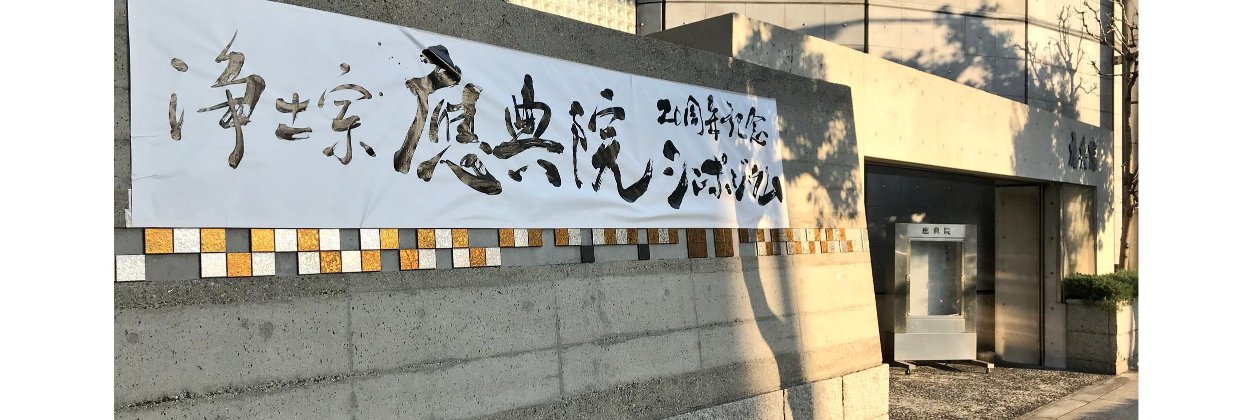 浄土宗應典院
20周年記念
シンポジウム
應典院
應典院